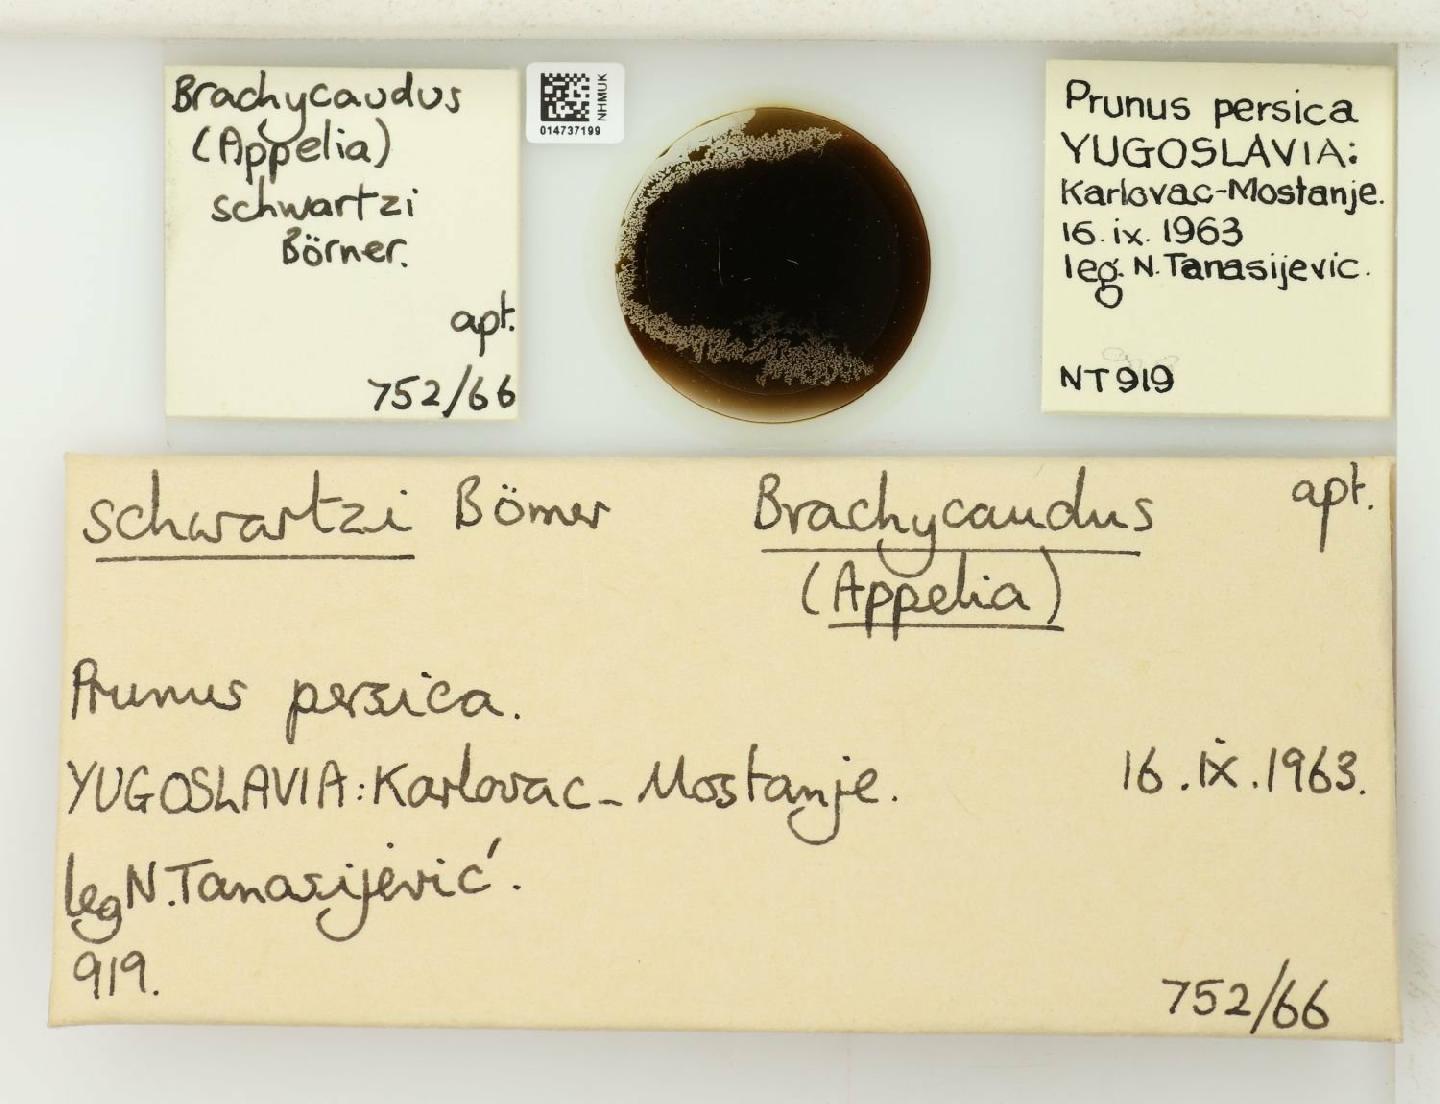 Brachycaudus
(Appelia)
schwartzi
Börner.
apt.
752/66
NHMUK
014737199
Prunus persica
YUGOSLAVIA:
Karlovac-Mostanje.
16.ix.1963
leg. N.Tanasijevic.
NT919
schwartzi Börner Brachycaudus apt.
(Appelia)
Prunus persica.
YUGOSLAVIA:Karlovac-Mostanje. 16.ix.1963.
leg N.Tanasijević.
919.
752/66